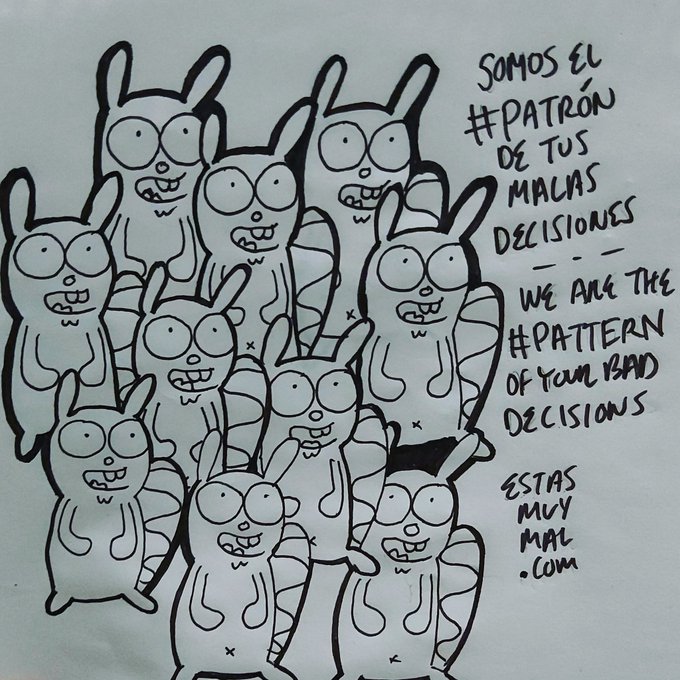 SOMOS EL
#PATRÓN
DE TUS
MALAS
DECISIONES
- - -
WE ARE THE
#PATTERN
OF YOUR BAD
DECISIONS
ESTAS
MUY
MAL
.COM